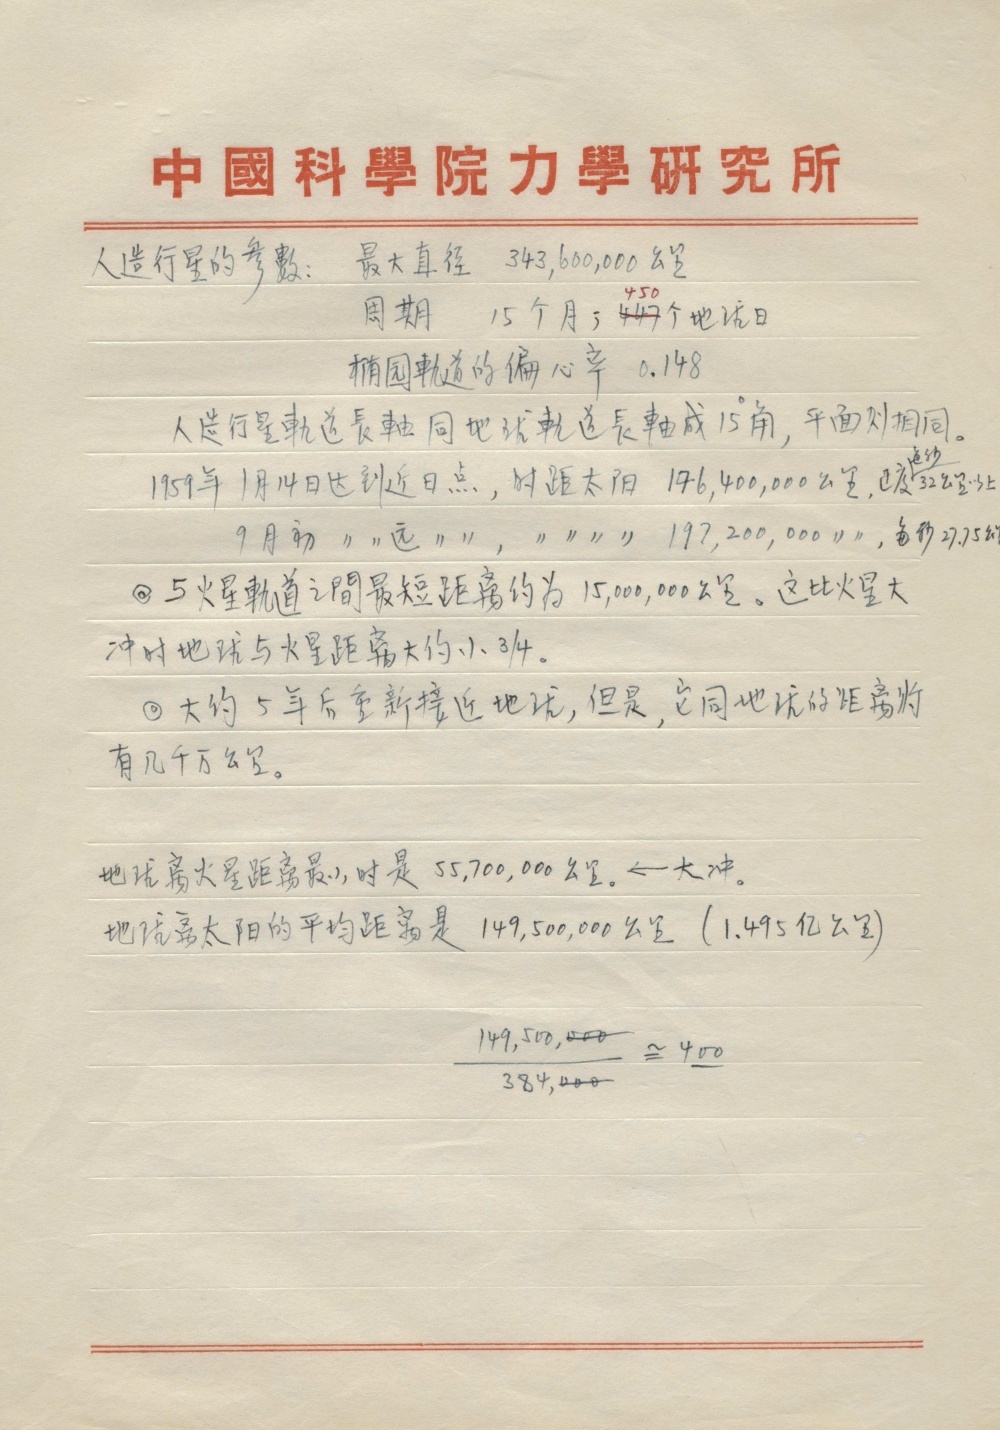 中國科學院力學研究所
人造行星的参數： 最大直径 343,600,000 公里
450
周期 15个月；447个地球日
椭园軌道的偏心率 0.148
人造行星軌道長軸同地球軌道長軸成15°角，平面则相同。
每秒
1959年1月14日达到近日点，时距太阳 146,400,000公里，速度32公里以上
9月初 〃〃远〃〃，〃〃〃〃 197,200,000〃〃，每秒27.75公里
◎ 与火星軌道之間最短距离约为 15,000,000公里。这比火星大
冲时地球与火星距离大约小3/4。
◎ 大约5年后重新接近地球，但是，它同地球的距离将
有几千万公里。
地球离火星距离最小时是 55,700,000公里。←大冲。
地球离太阳的平均距离是 149,500,000公里 (1.495亿公里)
149,500,000
≅ 400
384,000